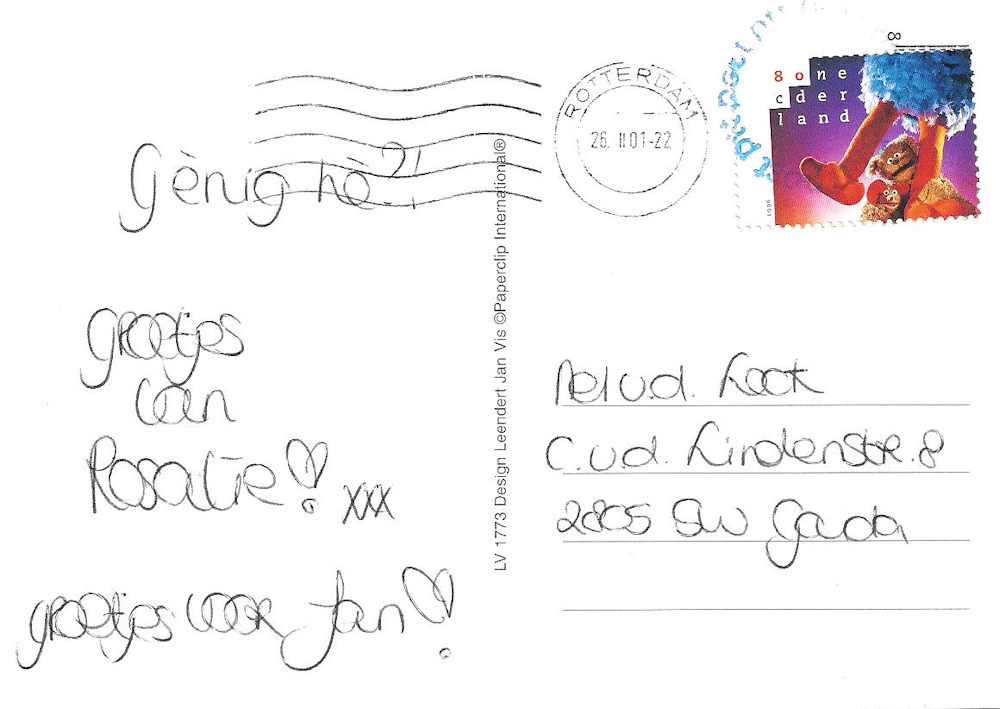 Gènig hè?!
groetjes
van
Rosalie! xxx
groetjes voor Jan!
LV 1773 Design Leendert Jan Vis ©Paperclip International®
ROTTERDAM
26. II01-22
80 ne
cder
land
1996
Nel v.d. Loot
C.v.d. Lindenstr. 8
2805 SW Gouda